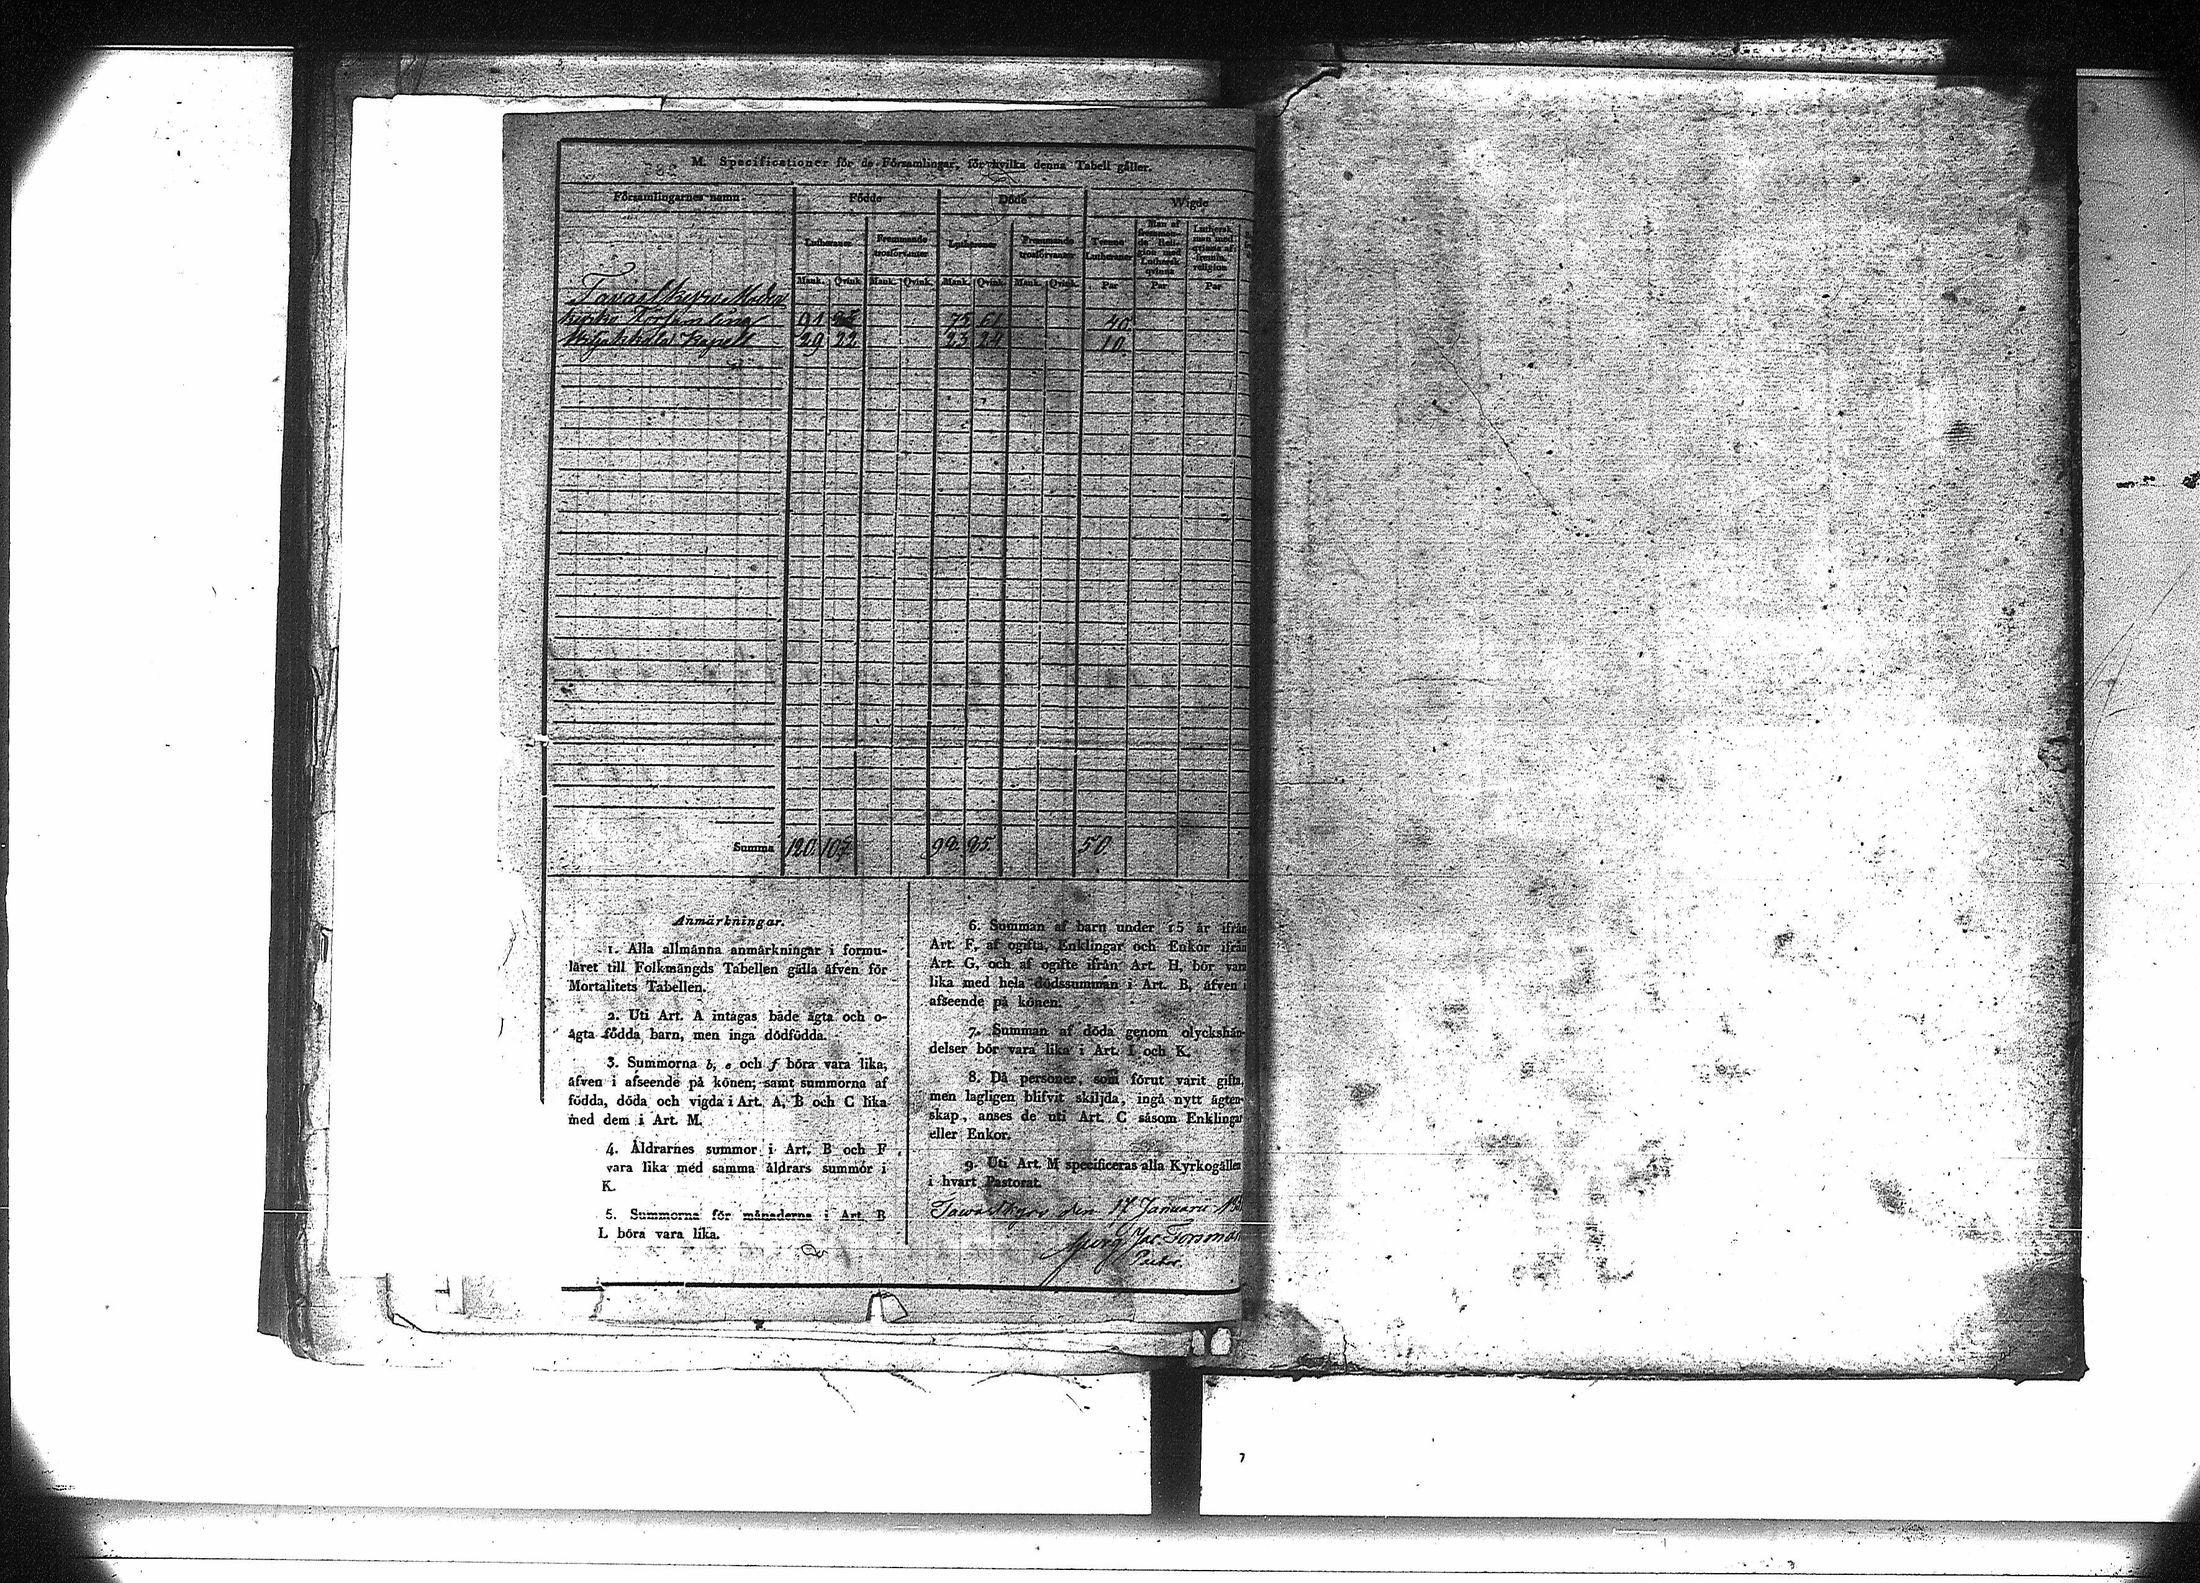 M. Specificationer för de Församlingar, för hvilka denna Tabell gäller.
Församlingarnes namn. Födde Döde Wigde
Lutheraner Fremmande trosförvanter Lutheraner Fremmande trosförvanter Tvenne Lutheraner Man af fremmande Religion med Luthersk qvinna Luthersk man med qvinna af fremm. religion
Mank. Qvink. Mank. Qvink. Mank. Qvink. Mank. Qvink. Par Par Par
Tavastkyro Moder
kyrko Församling 91 75 61 40
Kapell 29 22 23 24 10
Summa 120 107 98. 85. 50.
Anmärkningar.
1. Alla allmänna anmärkningar i formu-
läret till Folkmängds Tabellen gälla äfven för
Mortalitets Tabellen.
2. Uti Art. A intagas både ägta och o-
ägta födda barn, men inga dödfödda.
3. Summorna b, e och f böra vara lika,
äfven i afseende på könen; samt summorna af
födda, döda och vigda i Art. A, B och C lika
med dem i Art. M.
4. Åldrarnes summor i Art. B och F
vara lika med samma åldrars summor i
K.
5. Summorna för månaderna i Art. B
L böra vara lika.
6. Summan af barn under 15 år ifrån
Art. F, af ogifta, Enklingar och Enkor ifrån
Art. G, och af ogifte ifrån Art. H, bör vara
lika med hela dödssumman i Art. B, äfven i
afseende på könen.
7. Summan af döda genom olyckshän-
delser bör vara lika i Art. I och K.
8. Då personer, som förut varit gifta,
men lagligen blifvit skiljda, ingå nytt ägten-
skap, anses de uti Art. C såsom Enklingar
eller Enkor.
9. Uti Art. M specificeras alla Kyrkogällen
i hvart Pastorat.
Tawastkyro den 17 Januarii
Jac. Forsman